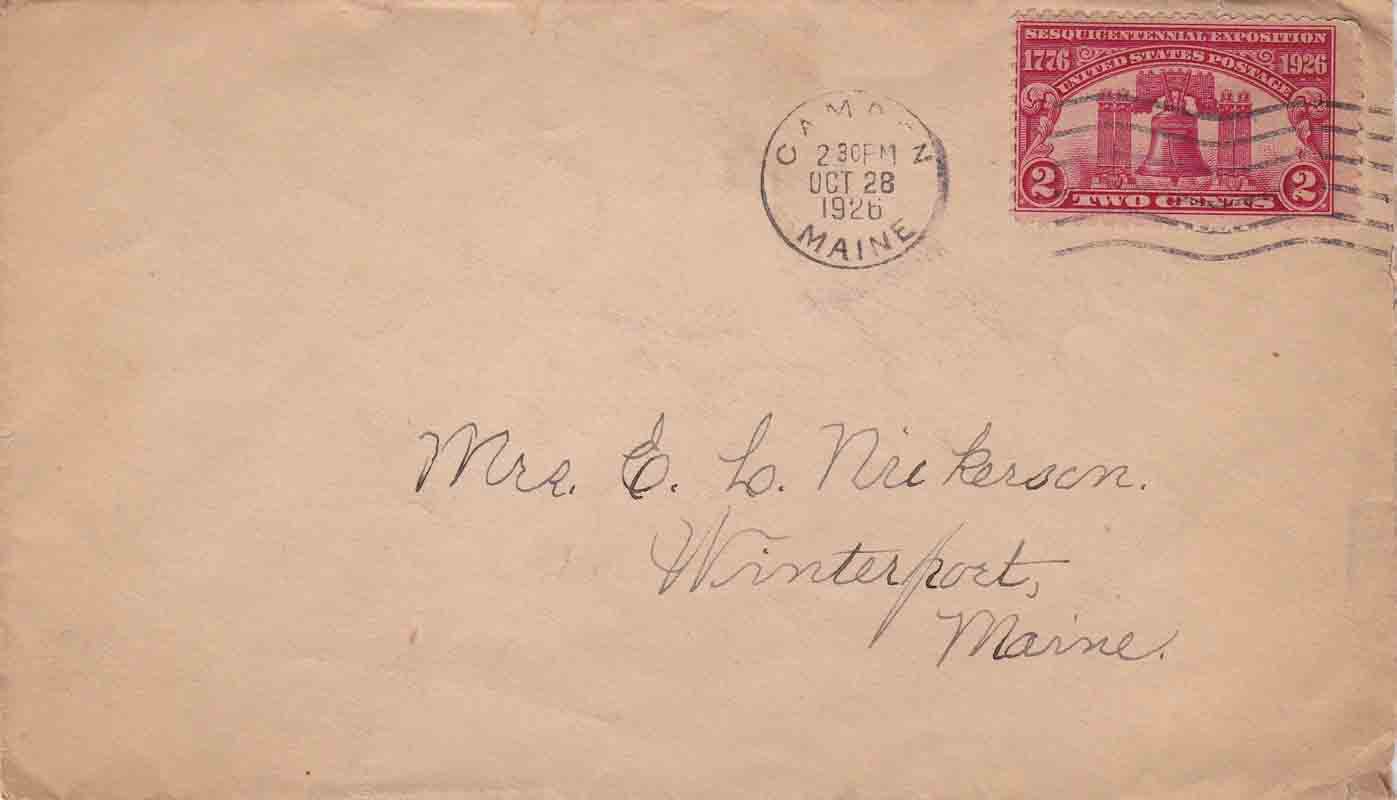 SESQUICENTENNIAL EXPOSITION
1776 UNITED STATES POSTAGE 1926
2 TWO CENTS 2
CAMDEN
2 30PM
OCT 28
1926
MAINE
Mrs. E. L. Nickerson.
Winterport,
Maine.